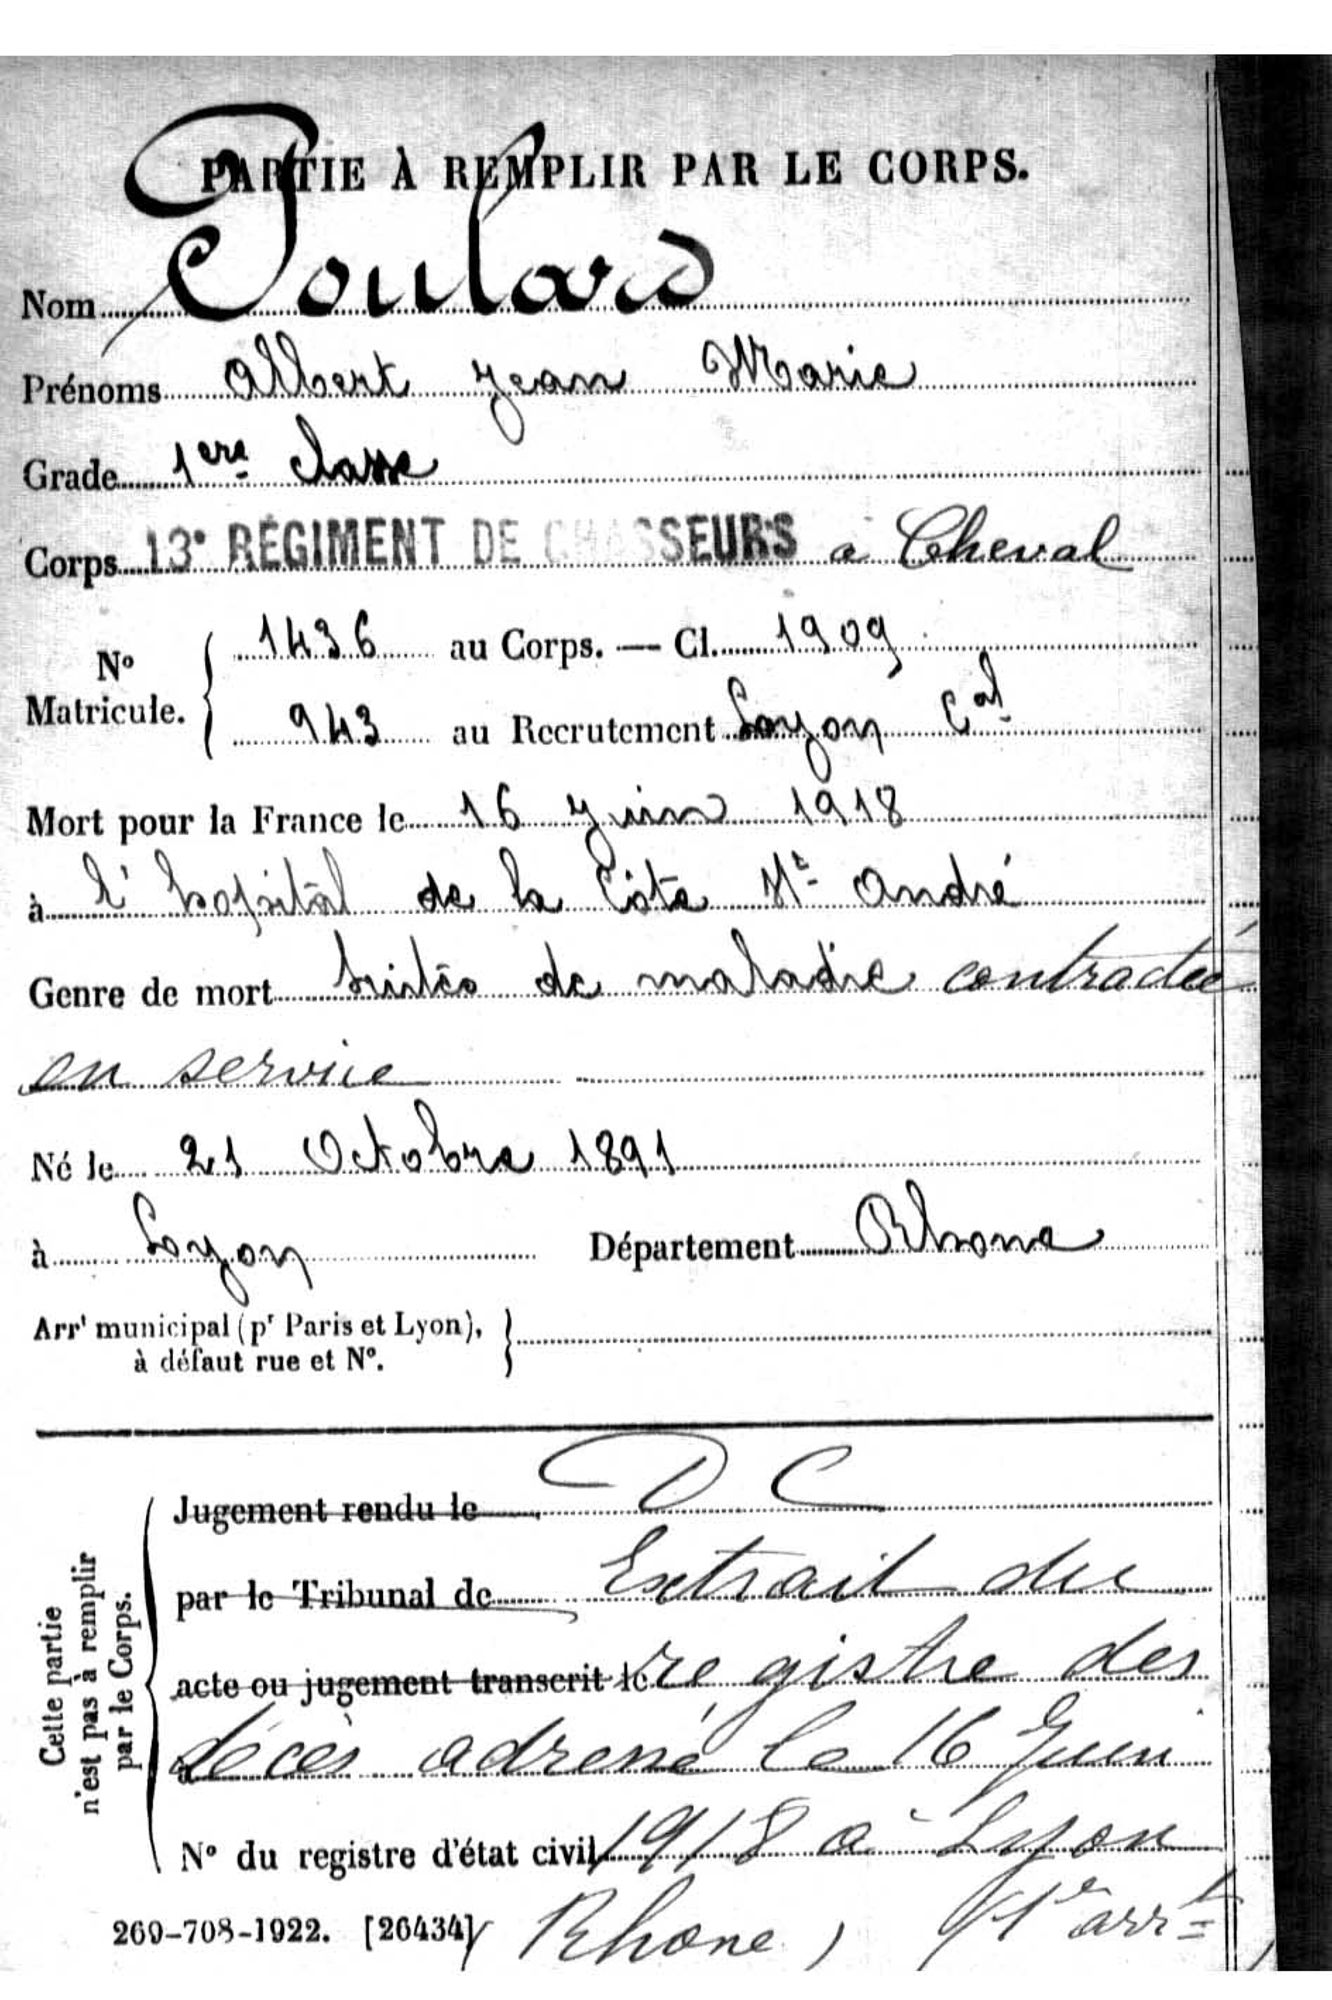 PARTIE À REMPLIR PAR LE CORPS.
Nom Poulard
Prénoms Albert Jean Marie
Grade 1ere classe
Corps 13e RÉGIMENT DE CHASSEURS a Cheval
No Matricule. { 1436 au Corps. — Cl. 1909
943 au Recrutement Lyon Cal
Mort pour la France le 16 Juin 1918
à l'hopitâl de la Côte St André
Genre de mort Suites de maladie contractée
en service
Né le 21 Octobre 1891
à Lyon Département Rhone
Arrt municipal (pr Paris et Lyon), à défaut rue et No. }
Cette partie n'est pas à remplir par le Corps.
Jugement rendu le D C
par le Tribunal de Extrait du
acte ou jugement transcrit le registre des
à décès adressé le 16 Juin
No du registre d'état civil 1918 a Lyon
269-708-1922. [26434] Rhone, (1e arrt)